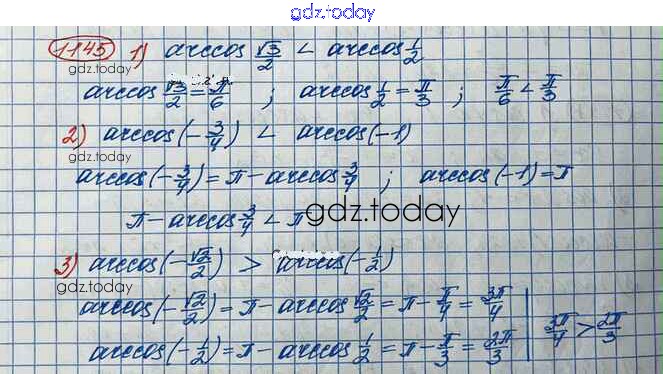 gdz.today
1145 1) arccos √3/2 < arccos 1/2
gdz.today
arccos √3/2 = π/6 ; arccos 1/2 = π/3 ; π/6 < π/3
2) arccos(-3/4) < arccos(-1)
gdz.today
arccos(-3/4) = π - arccos 3/4 ; arccos(-1) = π
π - arccos 3/4 < π
gdz.today
3) arccos(-√2/2) > arccos(-1/2)
gdz.today
arccos(-√2/2) = π - arccos √2/2 = π - π/4 = 3π/4
arccos(-1/2) = π - arccos 1/2 = π - π/3 = 2π/3 | 3π/4 > 2π/3